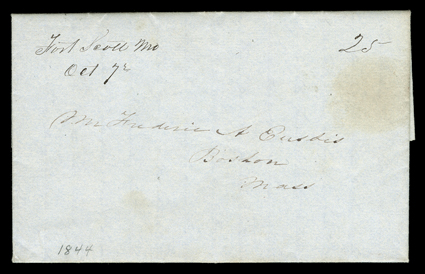 Fort Scott Mo
25
Oct 7th
Mr Frederic A Eustis
Boston
Mass
1844